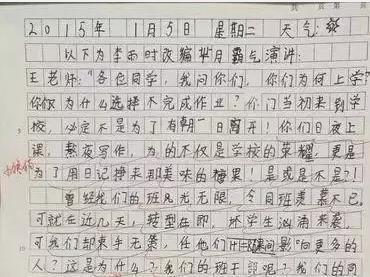 2015年 1月5日 星期二 天气:
以下为李雨时改编 月霸气演讲:
王老师:"各位同学,我问你们,你们为何上学?
你们又为什么选择不完成作业?你们当初来到学
校,必定不是为了有朝一日离开!你们日夜上
课,熬夜写作,为的不仅是学校的荣耀,更是
为了用日记换来那美味的糖果!是或不是?!
曾经我们的班风光无限,令同班羡慕不已。
可就在近几天,转型在即,坏学生汹涌来袭,
可我们却束手无策,任他们 影响更多的
人?这是为什么?我们的班干部呢?我们的同